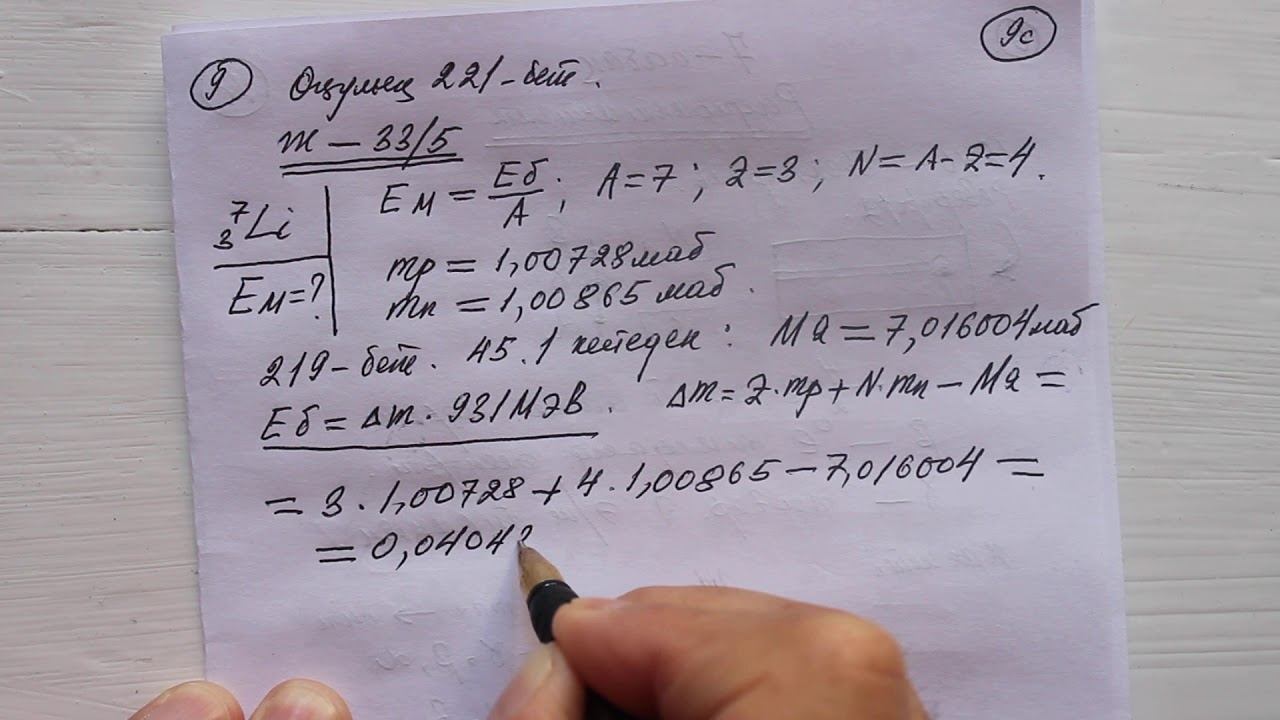 9 Оқулық 221-бет. 9c
Ж – 33/5
⁷₃Li Eм = Eб/A; A=7; Z=3; N=A-Z=4.
Eм=? mp = 1,00728 маб
mn = 1,00865 маб.
219-бет. 45.1 кестеден: Mя = 7,016004 маб
Eб = Δm·931МэВ. Δm = Z·mp + N·mn – Mя =
= 3·1,00728 + 4·1,00865 – 7,016004 =
= 0,0404